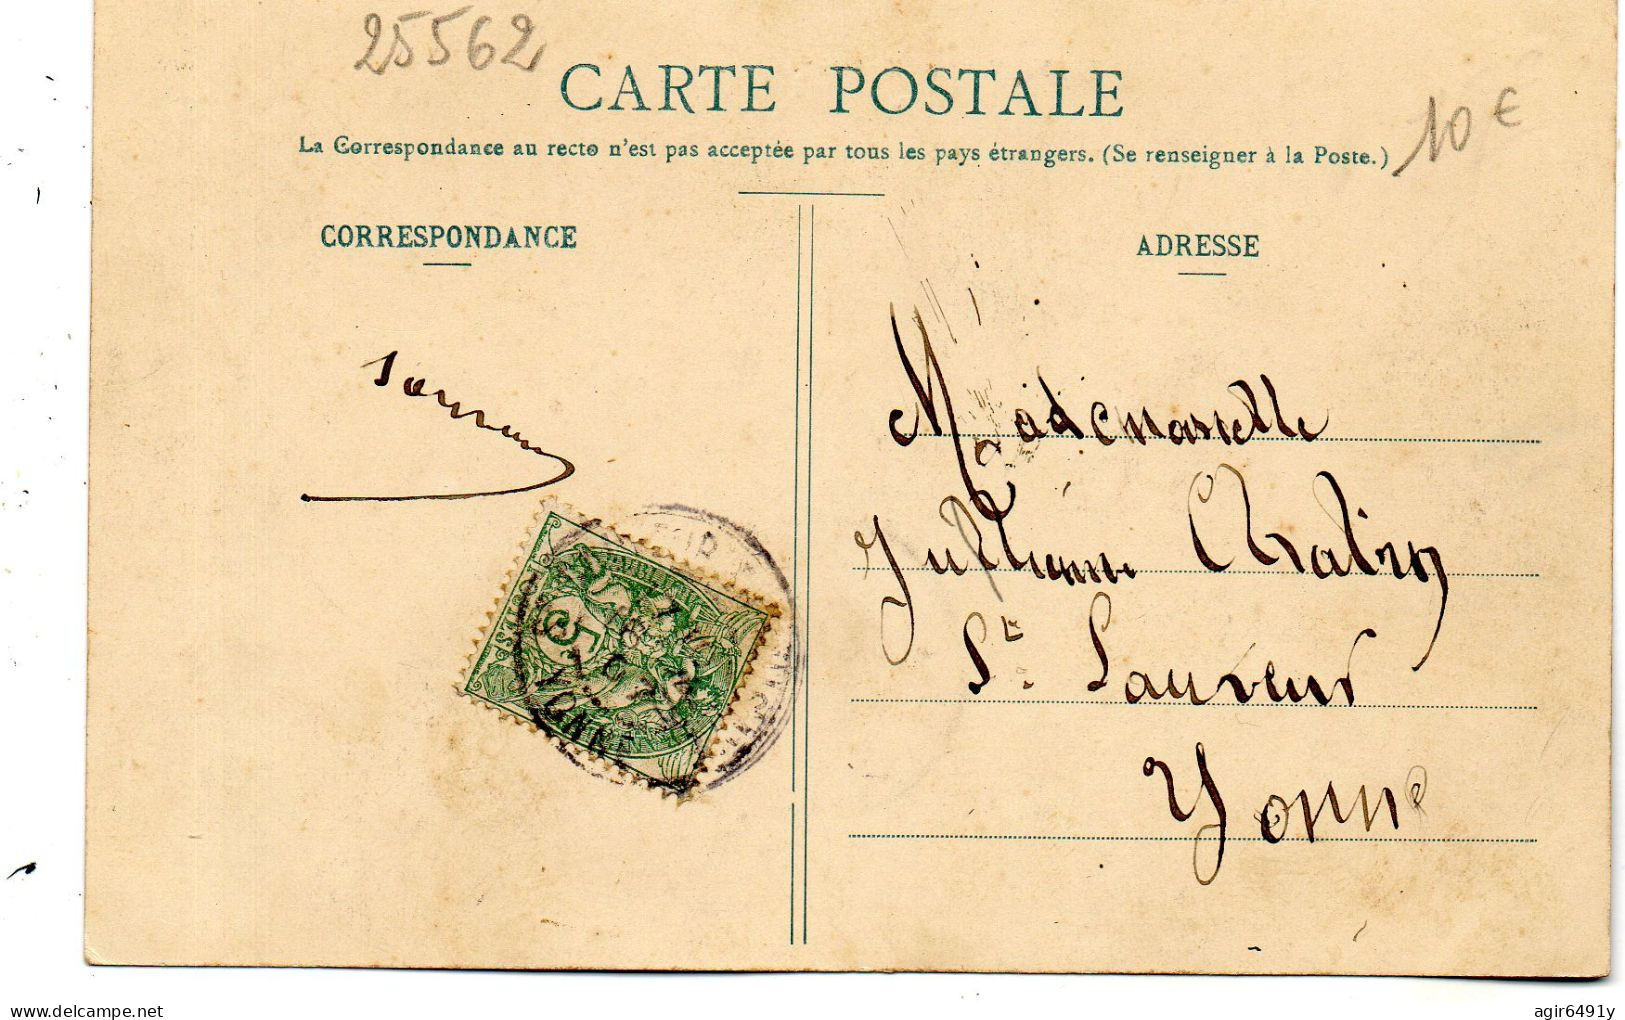 25562
CARTE POSTALE
La Correspondance au recto n'est pas acceptée par tous les pays étrangers. (Se renseigner à la Poste.)
10 €
CORRESPONDANCE
ADRESSE
Mademoiselle
St. Sauveur
Yonne
5
YONNE
delcampe.net
agir6491y